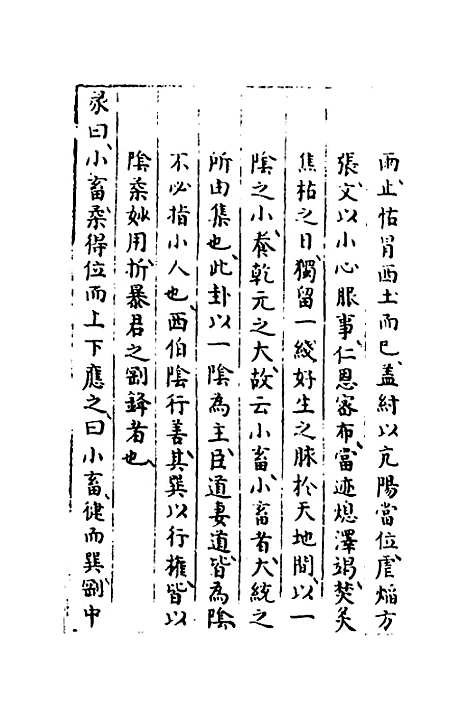 雨止怙冒西土而已蓋紂以亢陽當位虐焰方
張文以小心服事仁恩宻布當迹熄澤竭焚炙
焦枯之日獨留一綫好生之脉於天地間以一
隂之小養乾元之大故云小畜小畜者大統之
所由集也此卦以一隂為主臣道妻道皆為隂
不必指小人也西伯隂行善其巽以行權皆以
隂柔妙用折暴君之剛鋒者也
彖曰小畜柔得位而上下應之曰小畜健而巽剛中